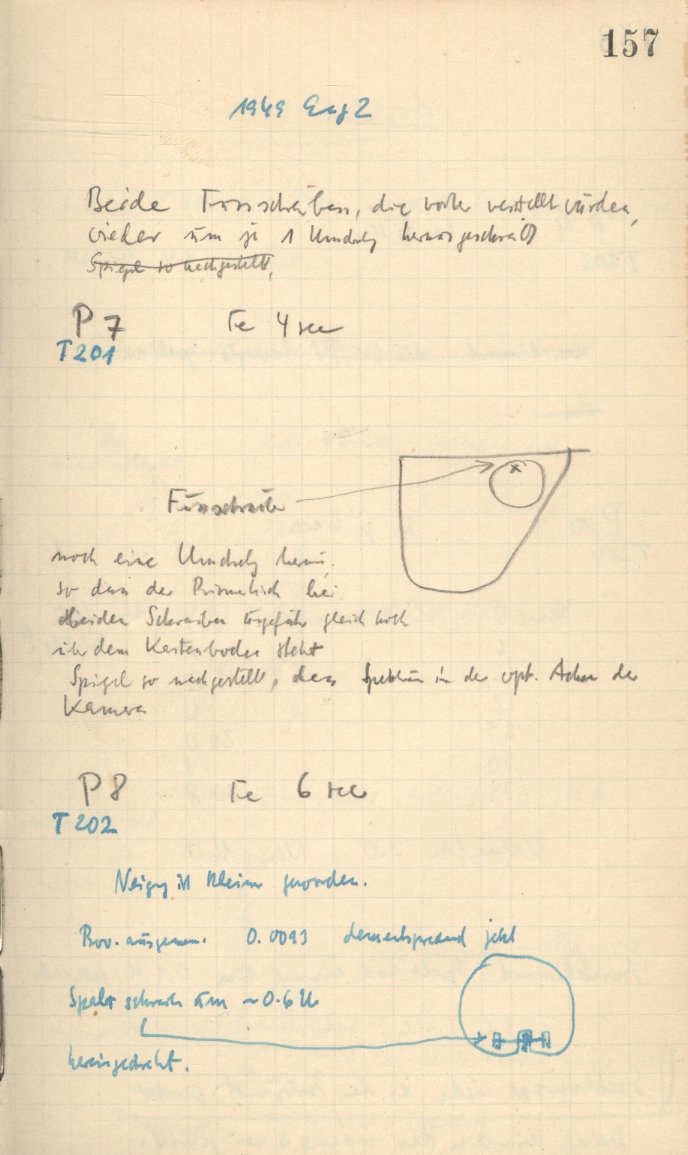 157
1949 Aug 2
Beide Fussschrauben, die vorher verstellt wurden,
wieder um je 1 Umdrehg herausgeschraubt
Spiegel so nachgestellt,
P7 Fe 4 sec
T201
x
Fussschraube
noch eine Umdrehg heraus.
so dass der Prismentisch bei
beiden Schrauben ungefähr gleich hoch
über dem Kastenboden steht
Spiegel so nachgestellt, dass Spektrum in der opt. Achse der
Kamera
P8 Fe 6 sec
T202
Neigg ist kleiner geworden.
0.0093 dementsprechend jetzt
Spaltschraube um ~0.6 U
hereingedreht.